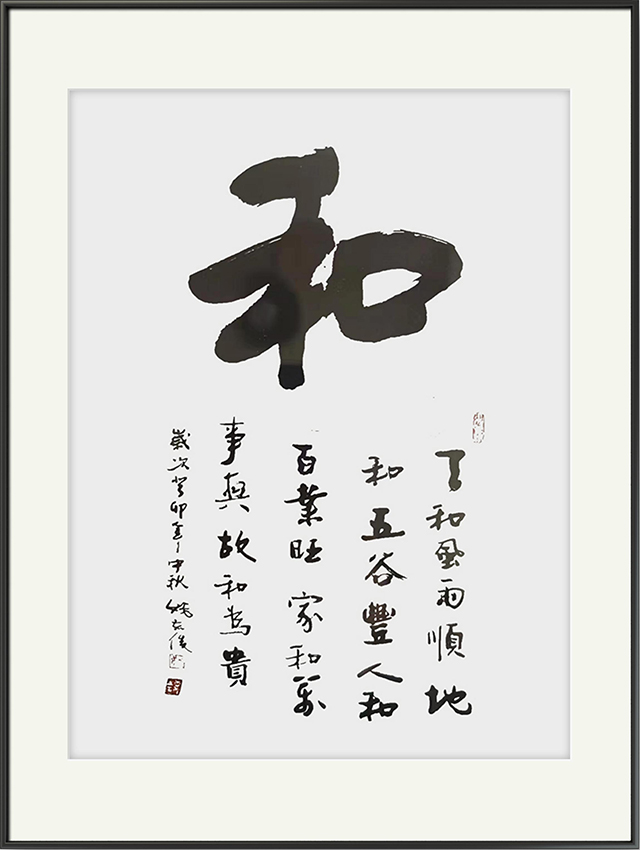 和
天和風雨順地
和五谷豐人和
百業旺家和萬
事興故和為貴
歲次癸卯年中秋